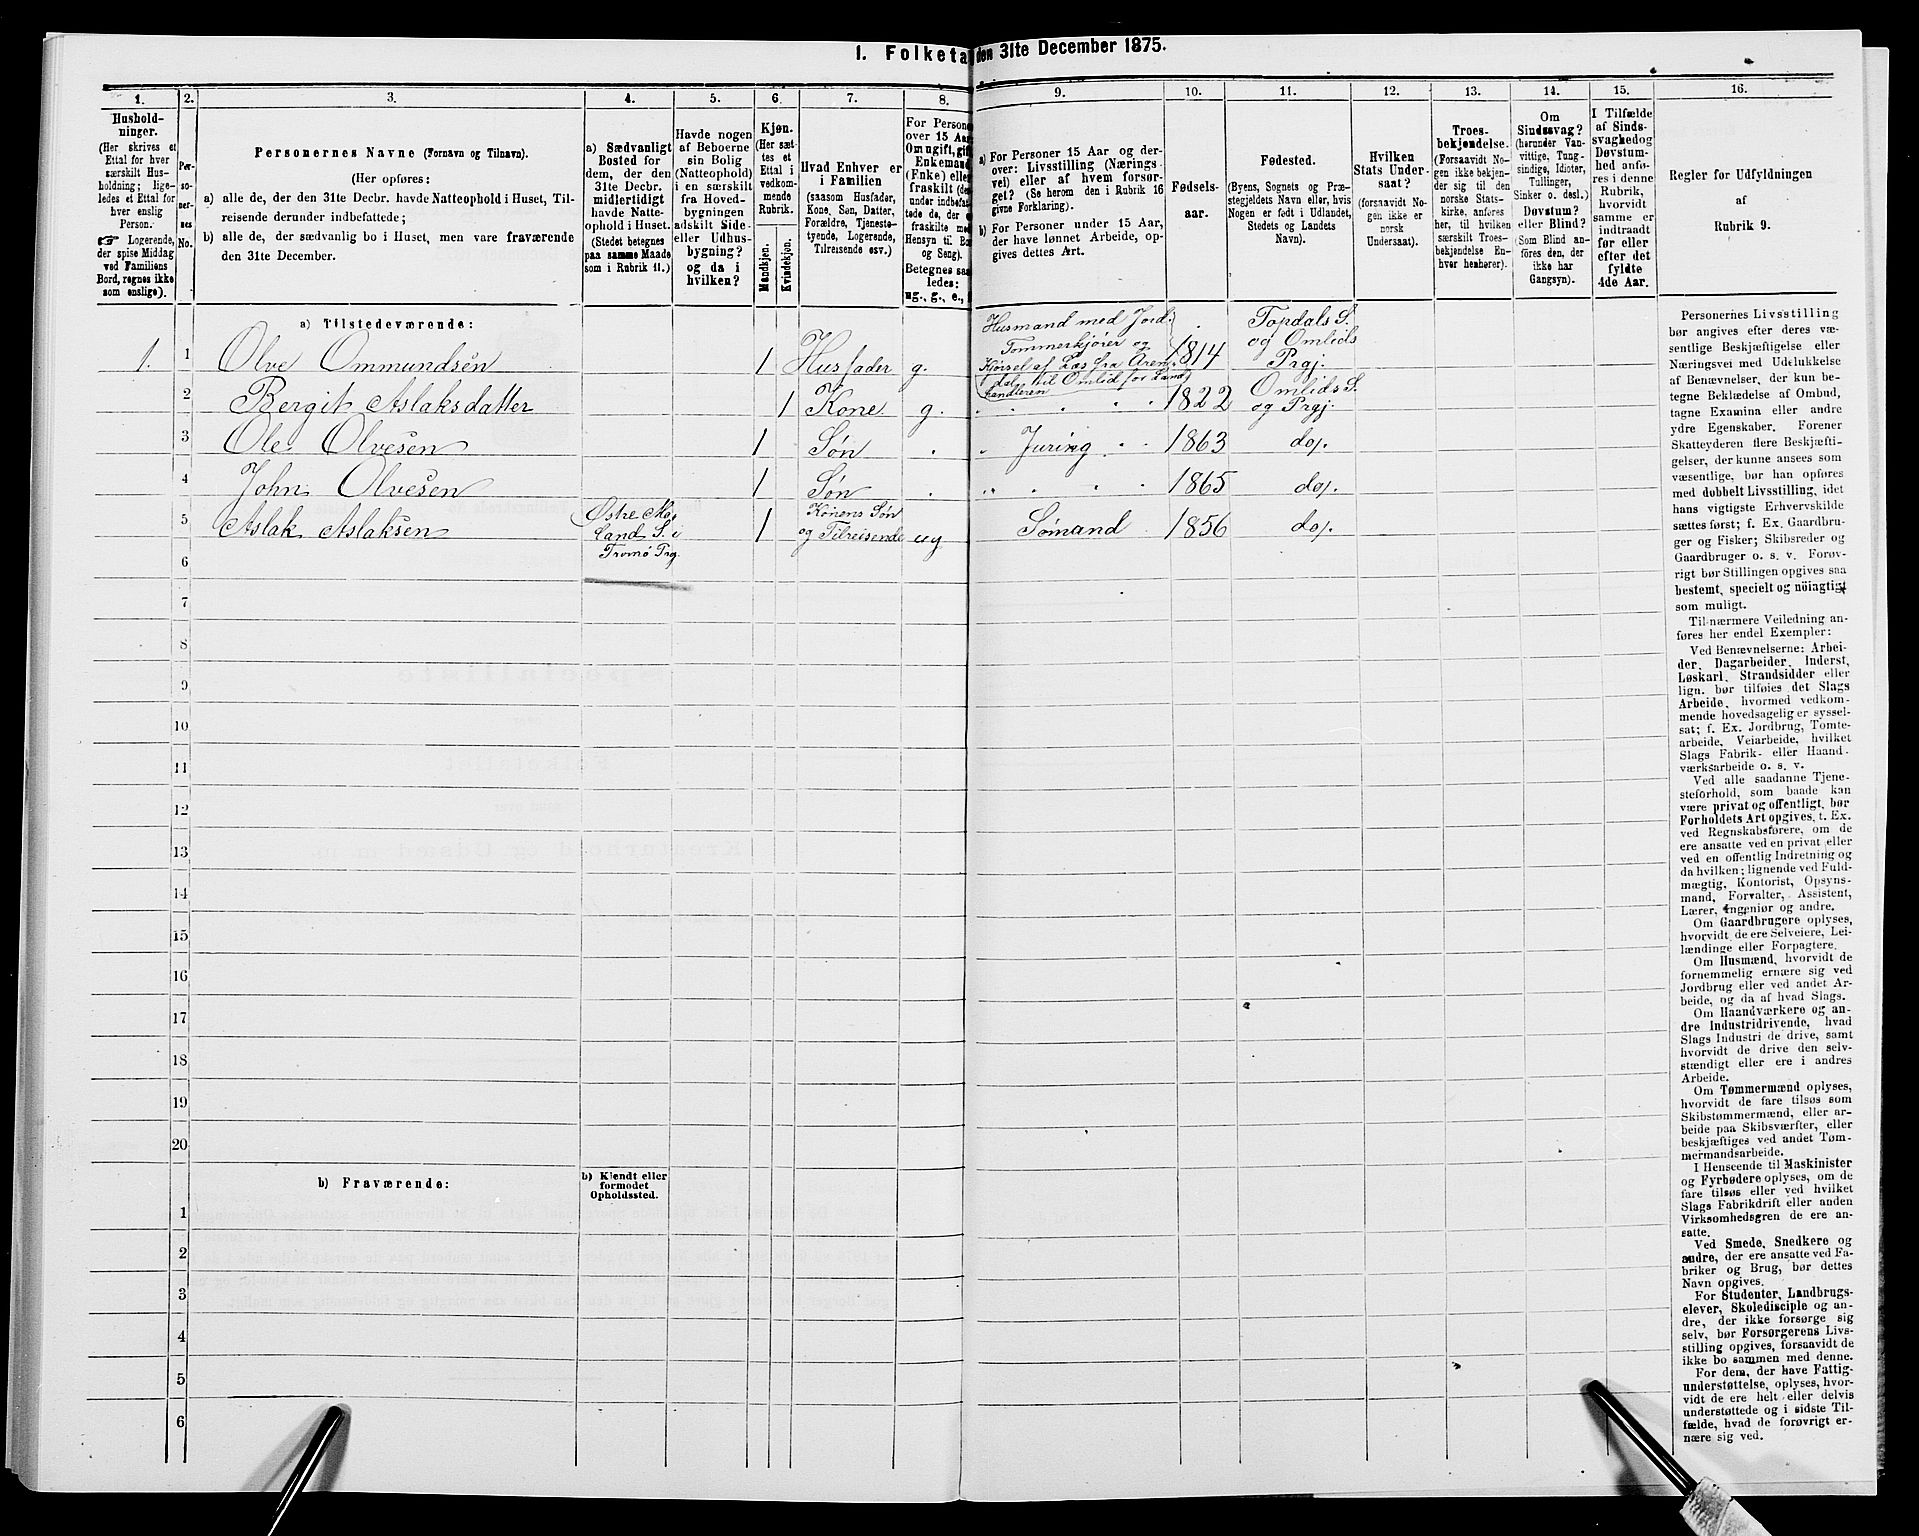 1. Folketal den 31te December 1875.
1. 2. 3. 4. 5. 6. 7. 8. 9. 10. 11. 12. 13. 14. 15. 16.
Hushold-
ninger.
(Her skrives et
Ettal for hver
særskilt Hus-
holdning; lige-
ledes et Ettal
for hver
enslig
Person.
☞ Logerende,
der spise Middag
ved Familiens
Bord, regnes ikke
som enslige).
Per-
so-
ner-
nes
No.
Personernes Navne (Fornavn og Tilnavn).
(Her opføres:
a) alle de, der den 31te Decbr. havde Natteophold i Huset, Til-
reisende derunder indbefattede;
b) alle de, der sædvanlig bo i Huset, men vare fraværende
den 31te December.
a) Sædvanligt
Bosted for
dem, der den
31te Decbr.
midlertidigt
havde Natte-
ophold i Huset.
(Stedet betegnes
paa samme Maade
som i Rubrik 11.)
Havde nogen
af Beboerne
sin Bolig
(Natteophold)
i en særskilt
fra Hoved-
bygningen
adskilt Side-
eller Udhus-
bygning?
og da i
hvilken?
Kjøn.
(Her sæt-
tes et
Ettal i
vedkom-
mende
Rubrik.
Mandkjøn.
Kvindekjøn.
Hvad Enhver er
i Familien
(saasom Husfader,
Kone, Søn, Datter,
Forældre, Tjeneste-
tyende, Logerende,
Tilreisende osv.)
For Personer
over 15 Aar:
Om ugift, gift,
Enkemand
(Enke) eller
fraskilt (der-
under indbefat-
tede de,
fraskilte med
Hensyn til Bord
og Seng).
Betegnes saa-
ledes:
ug., g., e.,
a) For Personer 15 Aar og der-
over: Livsstilling (Nærings-
vei) eller af hvem forsør-
get? (Se herom den i Rubrik 16
givne Forklaring).
b) For Personer under 15 Aar,
der have lønnet Arbeide, op-
gives dettes Art.
Fødsels-
aar.
Fødested.
(Byens, Sognets og Præ-
stegjeldets Navn eller, hvis
Nogen er født i Udlandet,
Stedets og Landets
Navn).
Hvilken
Stats Under-
saat?
(forsaavidt No-
gen ikke er
norsk
Undersaat).
Troes-
bekjendelse.
(Forsaavidt No-
gen ikke bekjen-
der sig til den
norske Stats-
kirke, anføres
her, til hvilken
særskilt Troes-
bekjendelse En-
hver henhører).
Om
Sindssvag?
(herunder Van-
vittige, Tung-
sindige, Idioter,
Tullinger,
Sinker o. desl.)
Døvstum?
eller Blind?
(Som Blind an-
føres den, der
ikke har
Gangsyn).
I Tilfælde
af Sinds-
svaghed og
Døvstum-
hed anfø-
res i denne
Rubrik,
hvorvidt
samme er
indtraadt
før eller
efter det
fyldte
4de Aar.
Regler for Udfyldningen
af
Rubrik 9.
a) Tilstedeværende:
1. 1 Olve Ommundsen 1 Husfader g. Husmand med Jord. Tømmerkjører og Kjørsel af Læs fra Aren-dal til Omlid for Land-handleren 1814 Topdals S. og Omlids Prgj.
2 Bergit Aslaksdatter 1 Kone g. 1822 Omlids S. og Prgj.
3 Ole Olvesen 1 Søn 1863 do/.
4 John Olvesen 1 Søn 1865 do/.
5 Aslak Aslaksen Østre Mo-land S. i Tromø Prg. 1 Konens Søn og Tilreisende ug Sømand 1856 do/.
6
7
8
9
10
11
12
13
14
15
16
17
18
19
20
b) Fraværende:
b) Kjendt eller
formodet
Opholdssted.
1
2
3
4
5
6
Personernes Livsstilling
bør angives efter deres væ-
sentlige Beskjæftigelse eller
Næringsvei med Udelukkelse
af Benævnelser, der kun be-
tegne Beklædelse af Ombud,
tagne Examina eller andre
ydre Egenskaber. Forener
Skatteyderen flere Beskjæfti-
gelser, der kunne ansees som
væsentlige, bør han opføres
med dobbelt Livsstilling, idet
hans vigtigste Erhvervskilde
sættes først; f. Ex. Gaardbru-
ger og Fisker; Skibsreder og
Gaardbruger o. s. v. Forøv-
rigt bør Stillingen opgives saa
bestemt, specielt og nöiagtigt
som muligt.
Til nærmere Veiledning an-
føres her endel Exempler:
Ved Benævnelserne: Arbei-
der, Dagarbeider, Inderst,
Løskarl, Strandsidder eller
lign. bør tilføies det Slags
Arbeide, hvormed vedkom-
mende hovedsagelig er syssel-
sat; f. Ex. Jordbrug, Tomte-
arbeide, Veiarbeide, hvilket
Slags Fabrik- eller Haand-
værksarbeide o. s. v.
Ved alle saadanne Tjene-
steforhold, som baade kan
være privat og offentligt, bør
Forholdets Art opgives, t. Ex.
ved Regnskabsførere, om de
ere ansatte ved en privat eller
ved en offentlig Indretning og
da hvilken; lignende ved Fuld-
mægtig, Kontorist, Opsyns-
mand, Forvalter, Assistent,
Lærer, Ingeniør og andre.
Om Gaardbrugere oplyses,
hvorvidt de ere Selveiere, Lei-
lændinge eller Forpagtere.
Om Husmænd, hvorvidt de
fornemmelig ernære sig ved
Jordbrug eller ved andet Ar-
beide, og da af hvad Slags.
Om Haandværkere og an-
dre Industridrivende, hvad
Slags Industri de drive, samt
hvorvidt de drive den selv-
stændigt eller ere i andres
Arbeide.
Om Tømmermænd oplyses,
hvorvidt de fare tilsøs som
Skibstømmermænd, eller ar-
beide paa Skibsværfter, eller
beskjæftiges ved andet Tøm-
mermandsarbeide.
I Henseende til Maskinister
og Fyrbødere oplyses, om de
fare tilsøs eller ved hvilket
Slags Fabrikdrift eller anden
Virksomhedsgren de ere an-
satte.
Ved Smede, Snedkere og
andre, der ere ansatte ved Fa-
briker og Brug, bør dettes
Navn opgives.
For Studenter, Landbrugs-
elever, Skoledisciple og an-
dre, der ikke forsørge sig
selv, bør Forsørgerens Livs-
stilling opgives, forsaavidt de
ikke bo sammen med denne.
For dem, der have Fattig-
understøttelse, oplyses, hvor-
vidt de ere helt eller delvis
understøttede og i sidste Til-
fælde, hvad de forøvrigt er-
nære sig ved.